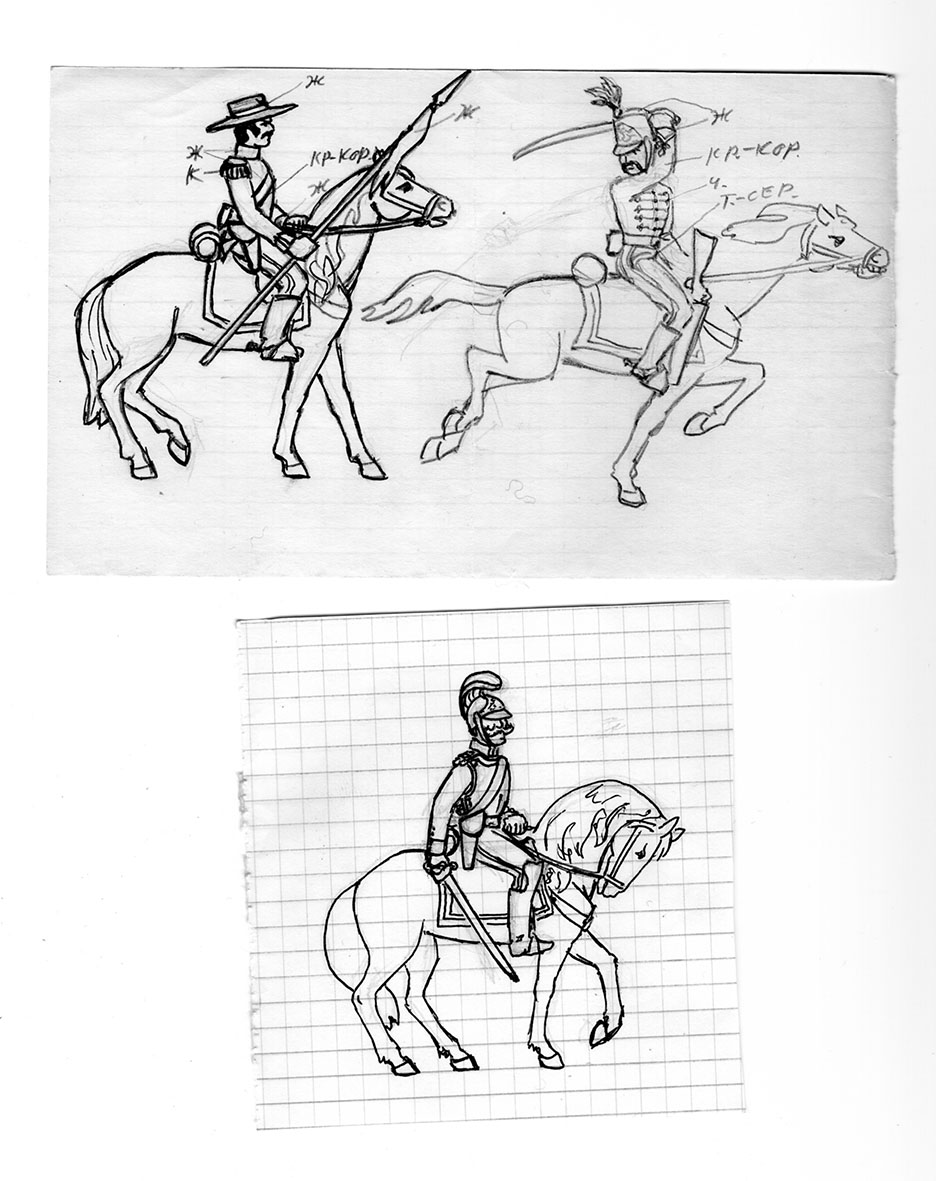 Ж
Ж
Ж
К
КР-КОР.
Ж
Ж
КР.-КОР.
Ч.
Т.-СЕР.